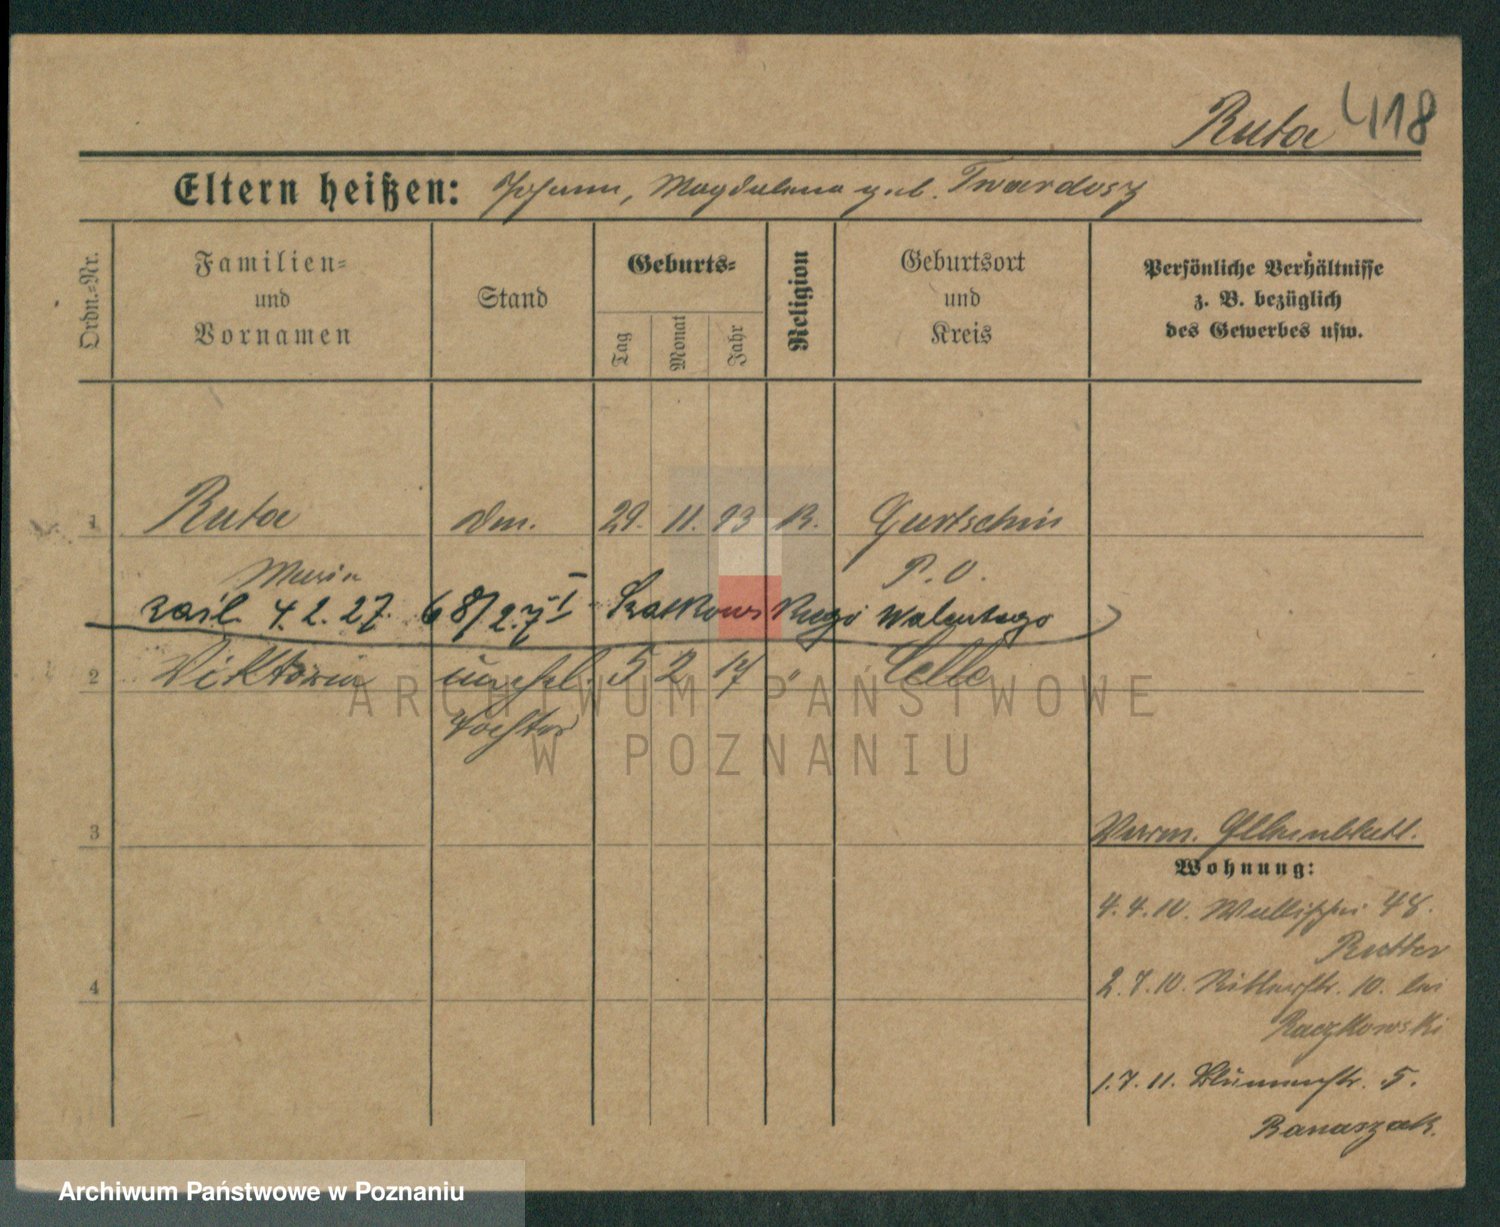 Ruta 418
Eltern heißen: Johann, Magdalena geb. Twardosz
Ordn.-Nr.
Familien-
und
Vornamen
Stand
Geburts-
Tag
Monat
Jahr
Religion
Geburtsort
und
Kreis
Persönliche Verhältnisse
z. B. bezüglich
des Gewerbes usw.
1 Ruta 29. 11. 93 K. Gurtschin
Maria P. O.
zaśl. 4.2.27. 68/27 I Walentego
2 Viktoria unehel. 5 2 17 " Celle
Tochter
3
Wohnung:
4.4.10. Wallischei 48.
Rutter
4
2.7.10. Ritterstr. 10. bei
Raczkowski
1.7.11. Blumenstr. 5.
Banaszak.
ARCHIWUM PAŃSTWOWE
W POZNANIU
Archiwum Państwowe w Poznaniu